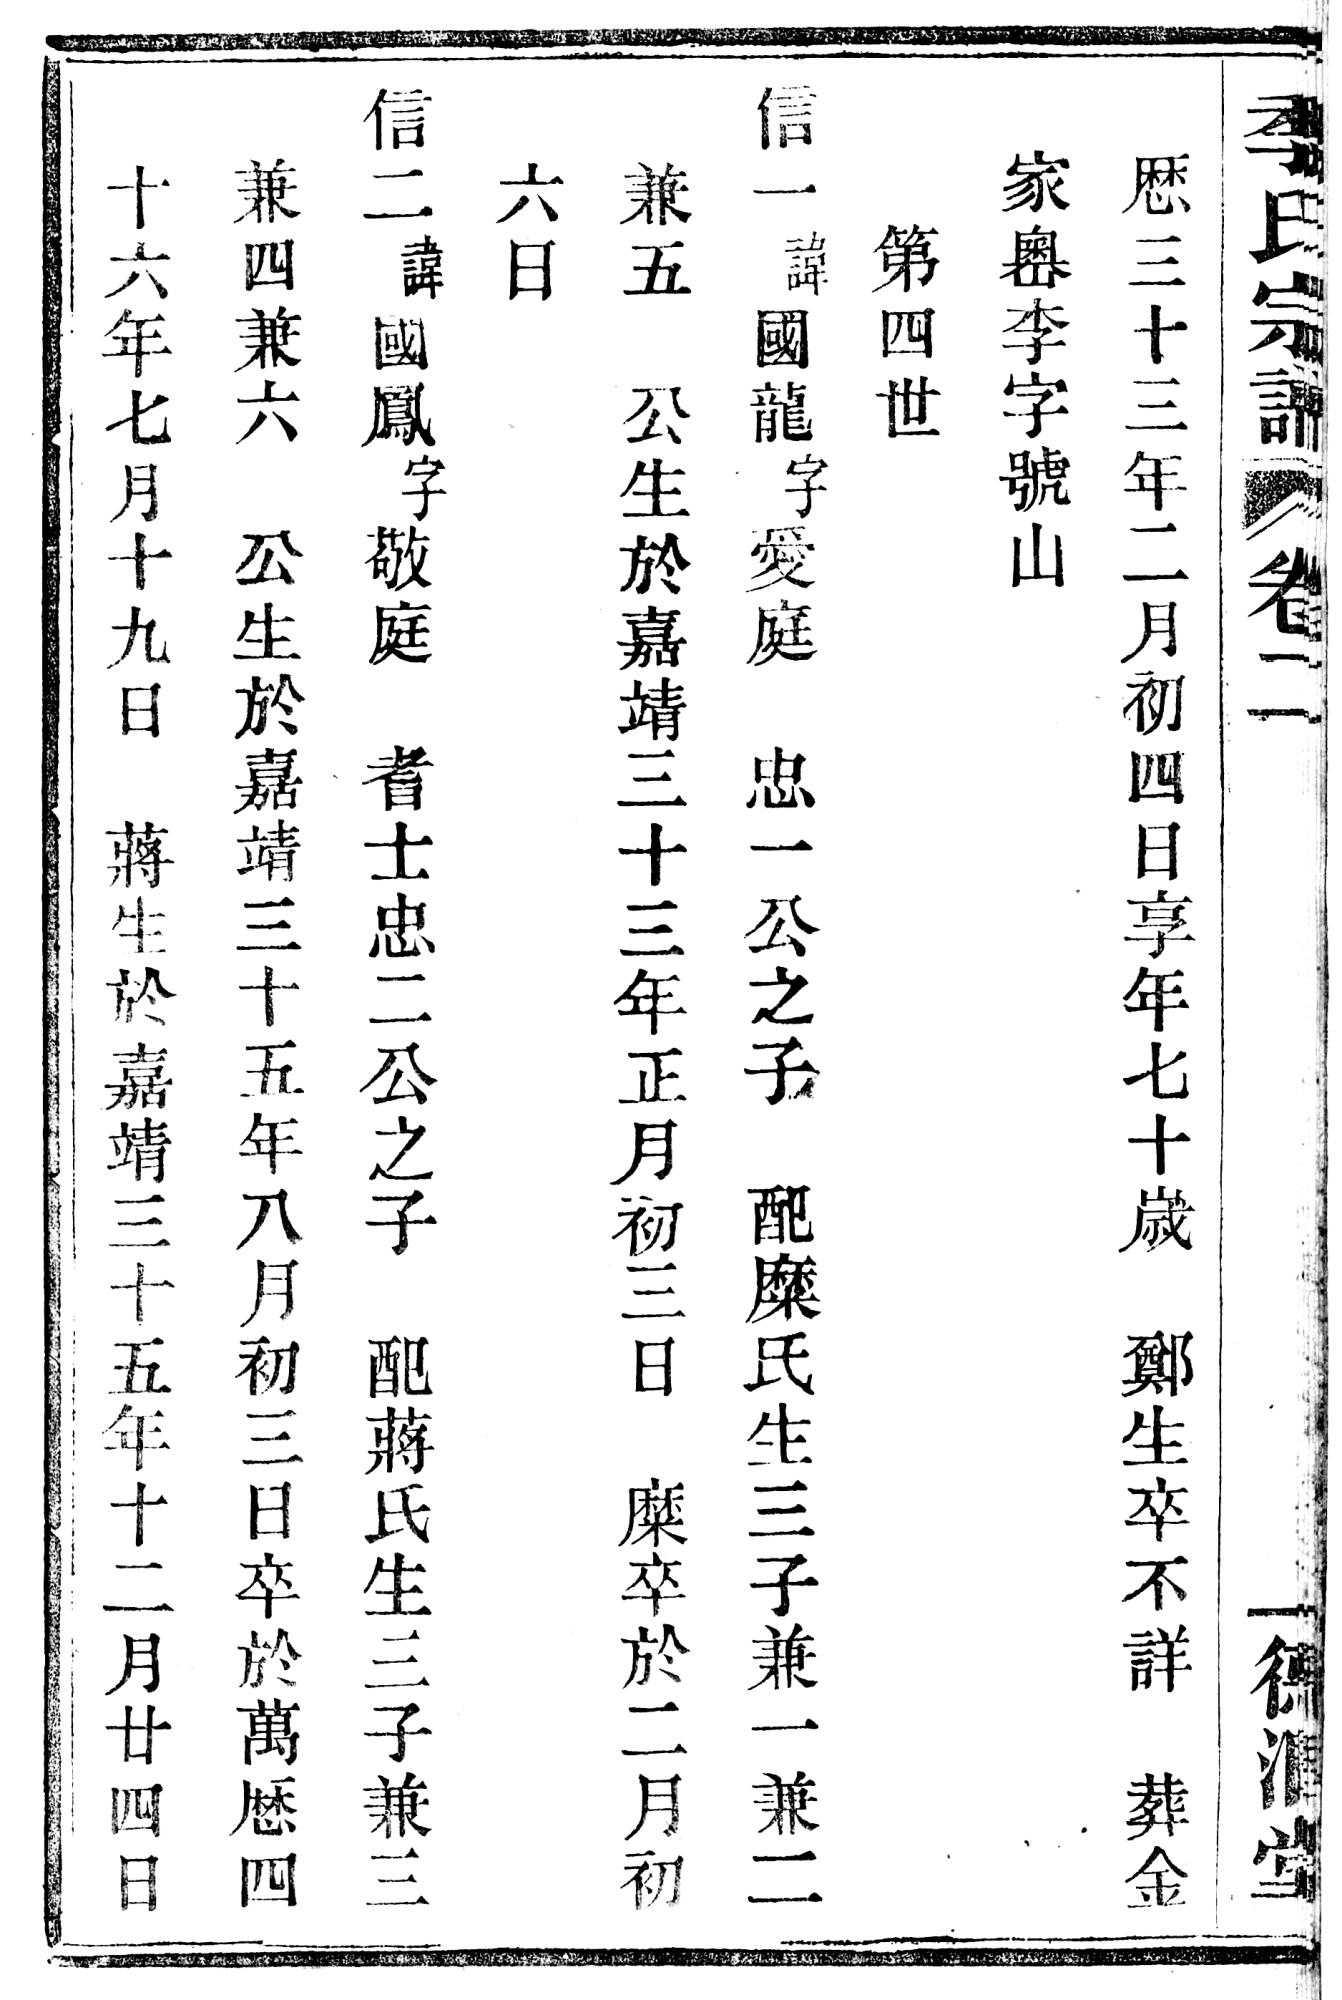 李氏宗譜 卷二 一
厯三十三年二月初四日享年七十歲 鄭生卒不詳 葬金
家嶴李字號山
第四世
信一諱國龍字愛庭 忠一公之子 配糜氏生三子兼一兼二
兼五 公生於嘉靖三十三年正月初三日 糜卒於二月初
六日
信二諱國鳳字敬庭 耆士忠二公之子 配蔣氏生三子兼三
兼四兼六 公生於嘉靖三十五年八月初三日卒於萬厯四
十六年七月十九日 蔣生於嘉靖三十五年十二月廿四日